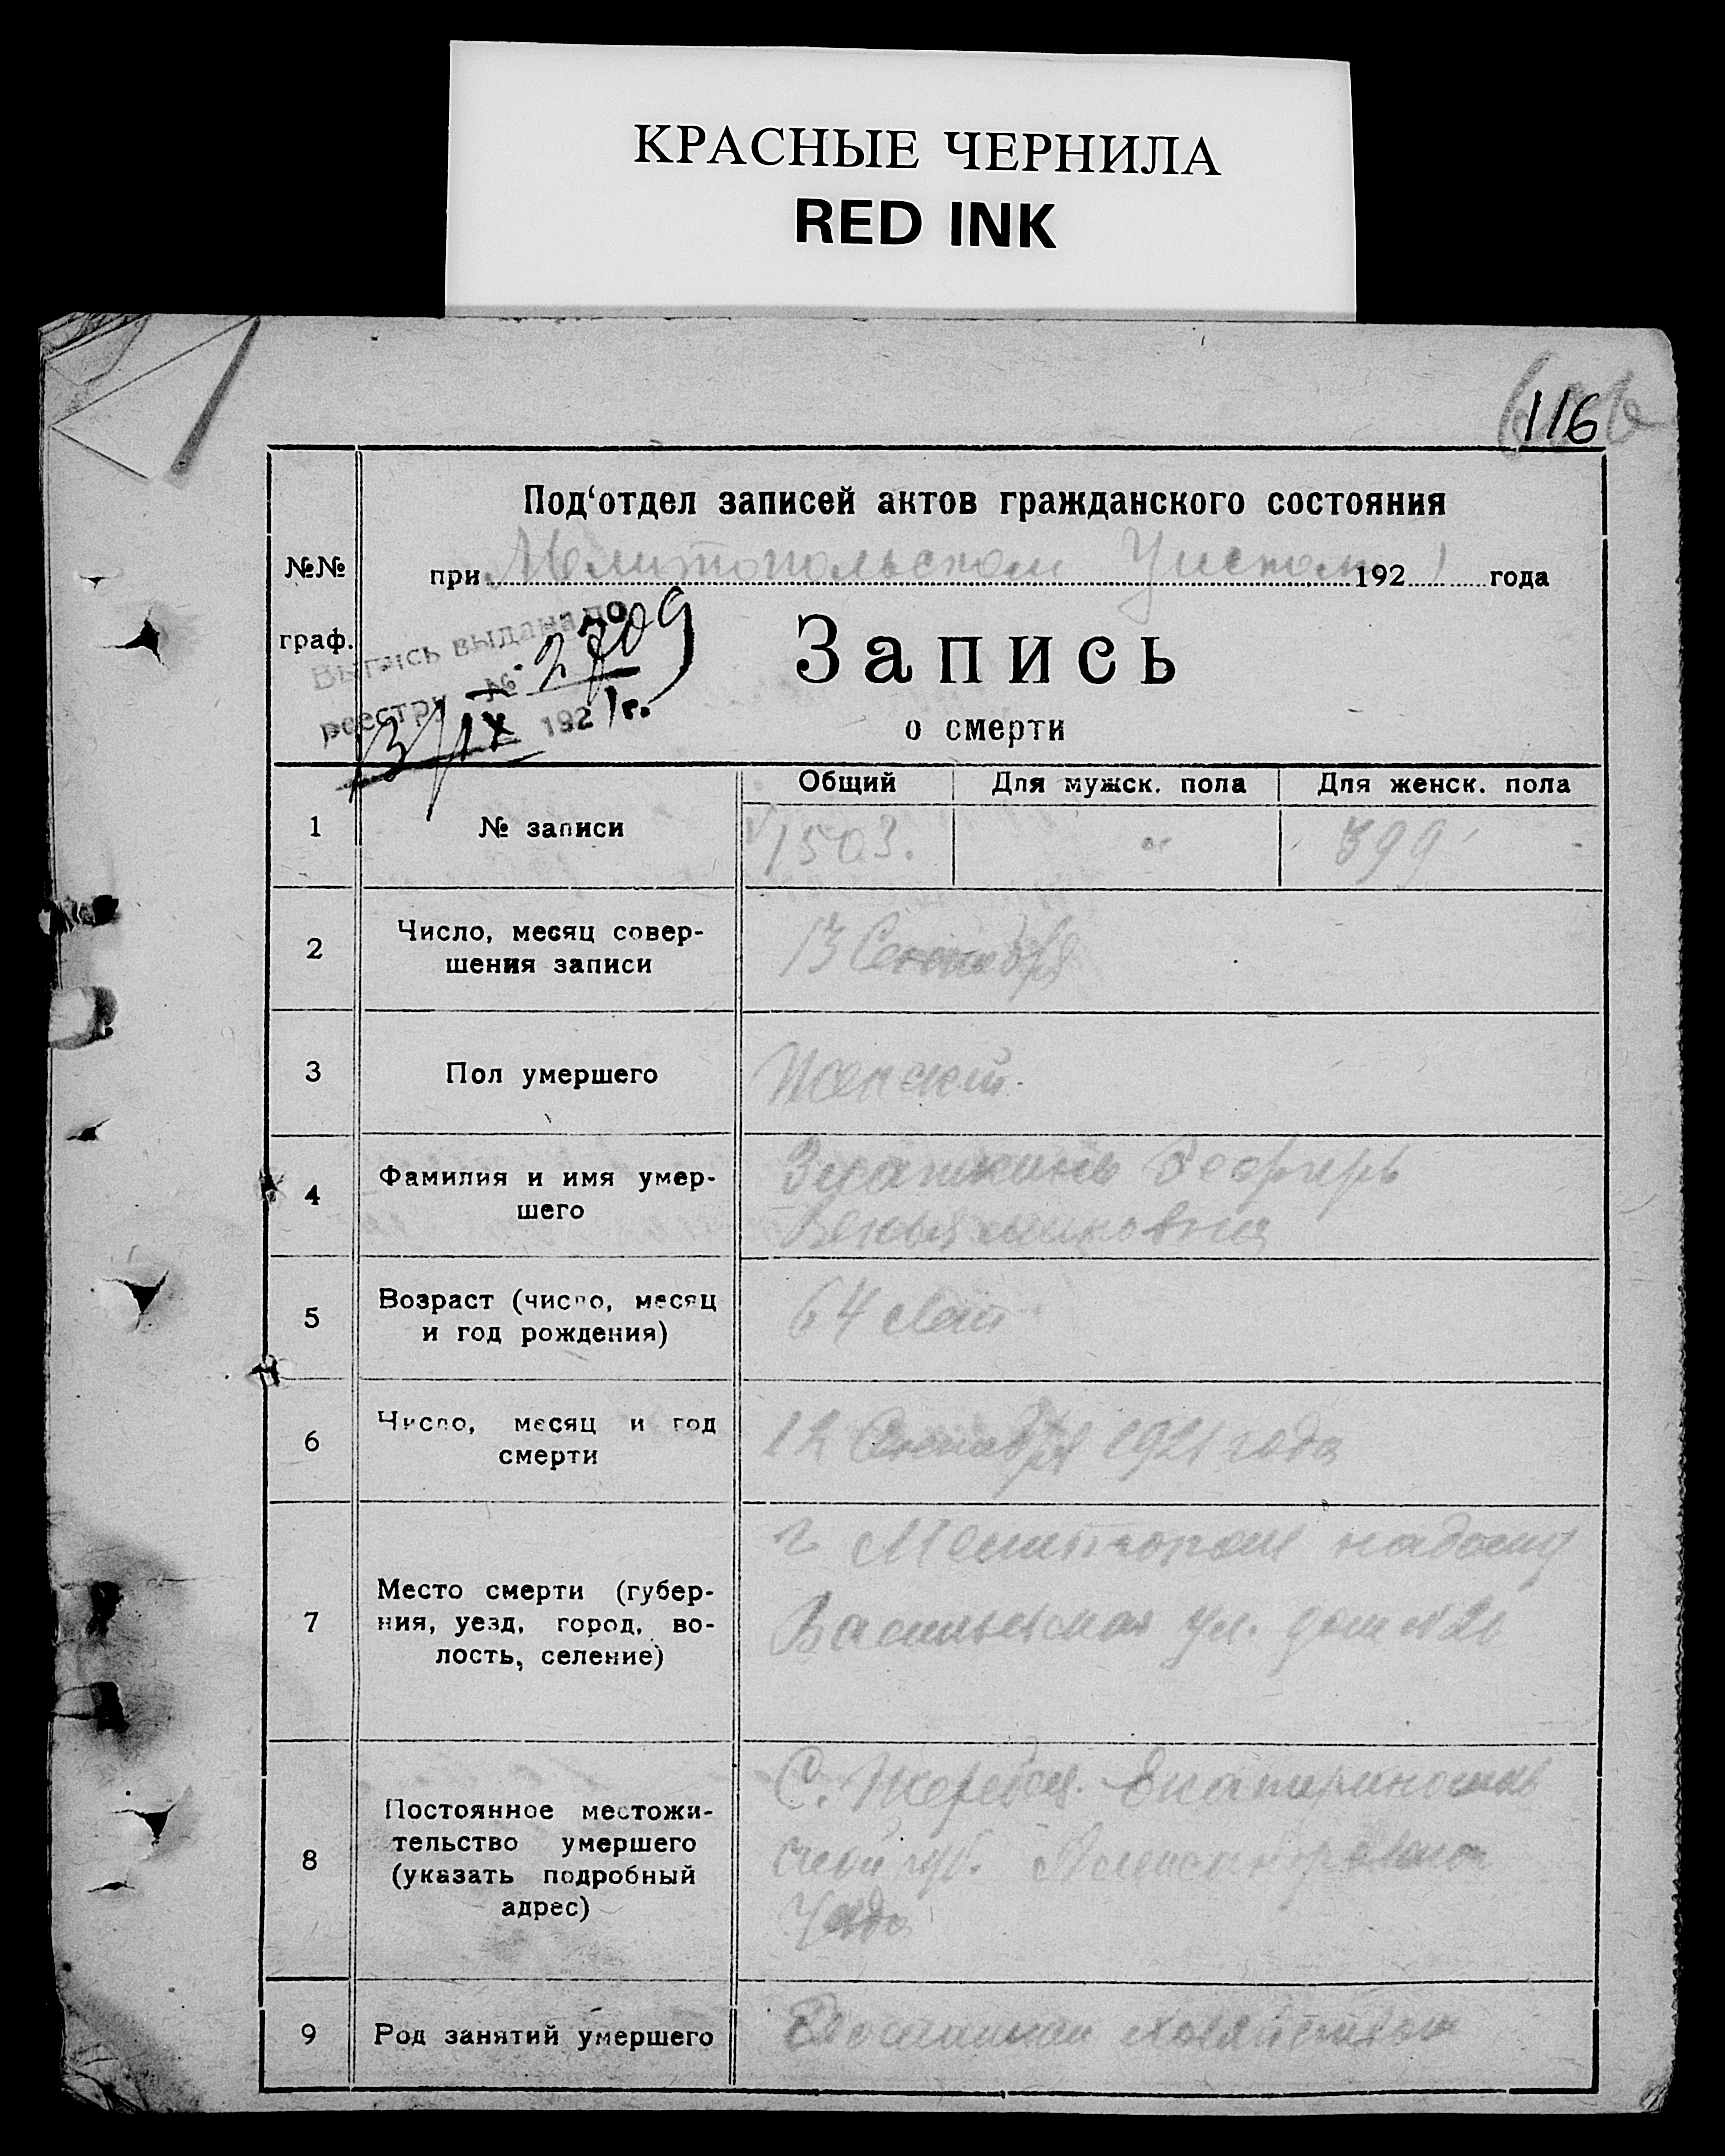 КРАСНЫЕ ЧЕРНИЛА
RED INK
116
Под‘отдел записей актов гражданского состояния
№№
граф.
при Мелитопольском Уисполк 192 1 года
Выпись выдана по
реестру № 2709
13/IX 1921г.
Запись
о смерти
Общий Для мужск. пола Для женск. пола
1 № записи 1503. " 399
2 Число, месяц совер-
шения записи
13 Сентября
3 Пол умершего Женский.
4 Фамилия и имя умер-
шего
Златкинъ
Веньяминовна
5 Возраст (число, месяц
и год рождения)
64 лет
6 Число, месяц и год
смерти
12 Сентября 1921 года
7 Место смерти (губер-
ния, уезд, город, во-
лость, селение)
г Мелитополь на дому
Васильевская ул. дом №
8 Постоянное местожи-
тельство умершего
(указать подробный
адрес)
С. Жеребец. Екатеринослав
ской губ.
9 Род занятий умершего